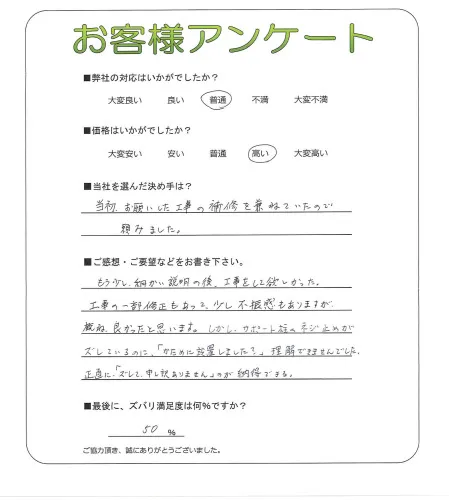 お客様アンケート
■弊社の対応はいかがでしたか?
大変良い 良い 普通 不満 大変不満
■価格はいかがでしたか?
大変安い 安い 普通 高い 大変高い
■当社を選んだ決め手は?
当初、お願いした工事の補修を兼ねていたので
頼みました。
■ご感想・ご要望などをお書き下さい。
もう少し、細かい説明の後、工事をして欲しかった。
工事の一部修正もあって、少し不振感もありますが、
概ね、良かったと思います。しかし、サポート板のネジ止めが
ズレているのに、「かために設置しました?」理解できませんでした。
正直に「ズレて、申し訳ありません」のが納得できる。
■最後に、ズバリ満足度は何%ですか?
50 %
ご協力頂き、誠にありがとうございました。